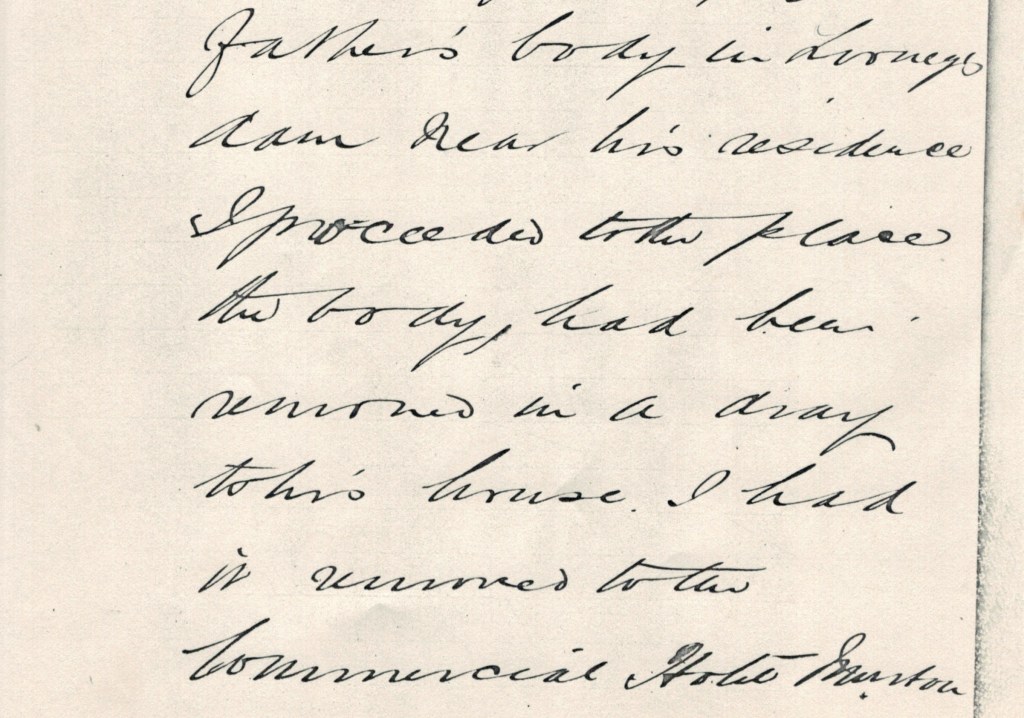 Father's body in Looneys
dam near his residence
I proceeded to the place
the body, had been
removed in a dray
to his house. I had
it removed to the
Commercial Hotel